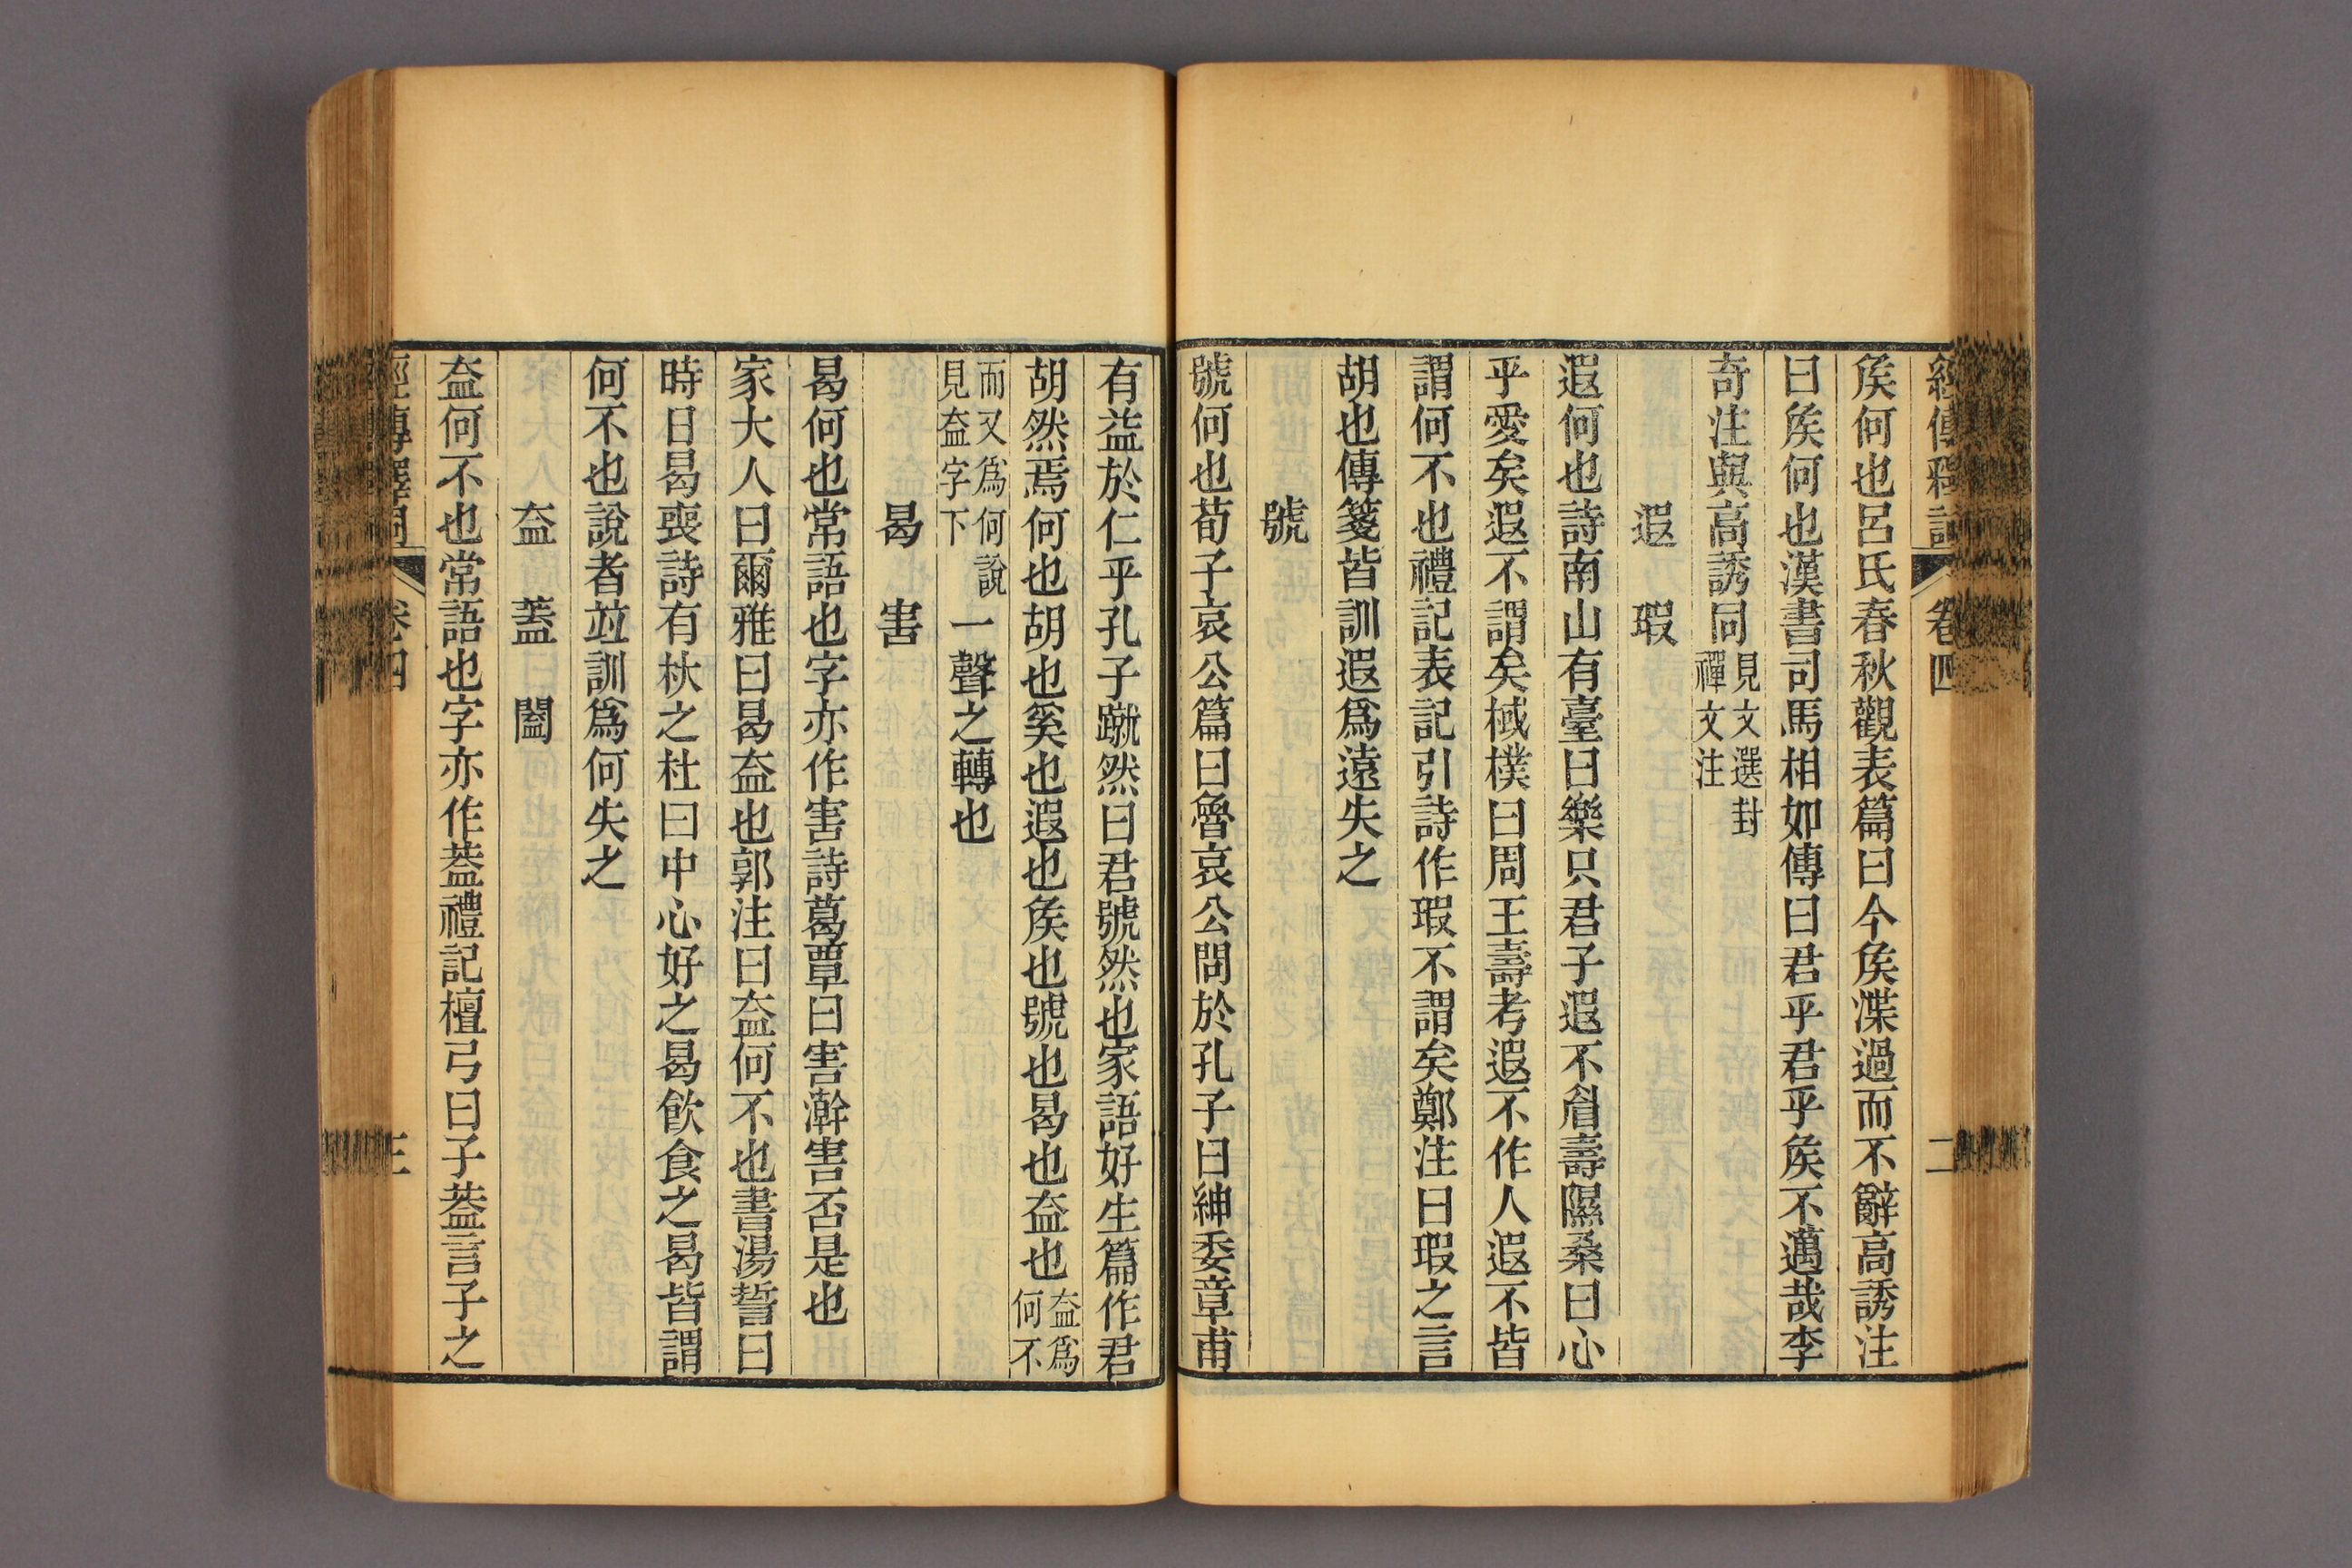 經傳釋詞 卷四 二
矦何也呂氏春秋觀表篇曰今矦渫過而不辭高誘注
曰矦何也漢書司馬相如傳曰君乎君乎矦不邁哉李
奇注與高誘同見文選封禪文注
遐 瑕
遐何也詩南山有臺曰樂只君子遐不眉壽隰桑曰心
乎愛矣遐不謂矣棫樸曰周王壽考遐不作人遐不皆
謂何不也禮記表記引詩作瑕不謂矣鄭注曰瑕之言
胡也傳箋皆訓遐爲遠失之
號
號何也荀子哀公篇曰魯哀公問於孔子曰紳委章甫
有益於仁乎孔子蹴然曰君號然也家語好生篇作君
胡然焉何也胡也奚也遐也矦也號也曷也盇也盇爲何不
而又爲何說見盇字下一聲之轉也
曷 害
曷何也常語也字亦作害詩葛覃曰害澣害否是也
家大人曰爾雅曰曷盇也郭注曰盇何不也書湯誓曰
時日曷喪詩有杕之杜曰中心好之曷飮食之曷皆謂
何不也說者竝訓爲何失之
盇 蓋 闔
盇何不也常語也字亦作葢禮記檀弓曰子葢言子之
經傳釋詞 卷四 三